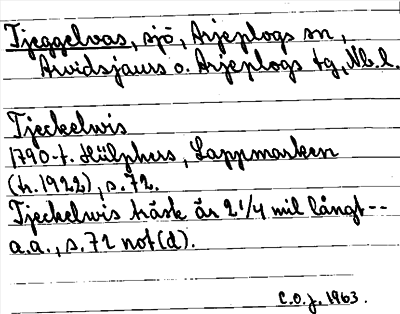 Tjeggelvas, sjö, Arjeplogs sn,
Arvidsjaurs o. Arjeplogs tg, Nb. l.
Tjeckelwis
1790-t. Hülphers, Lappmarken
(tr. 1922), s. 72.
Tjeckelwis träsk är 2 1/4 mil långt --
a.a., s. 72 not (d).
C.O.J. 1963.